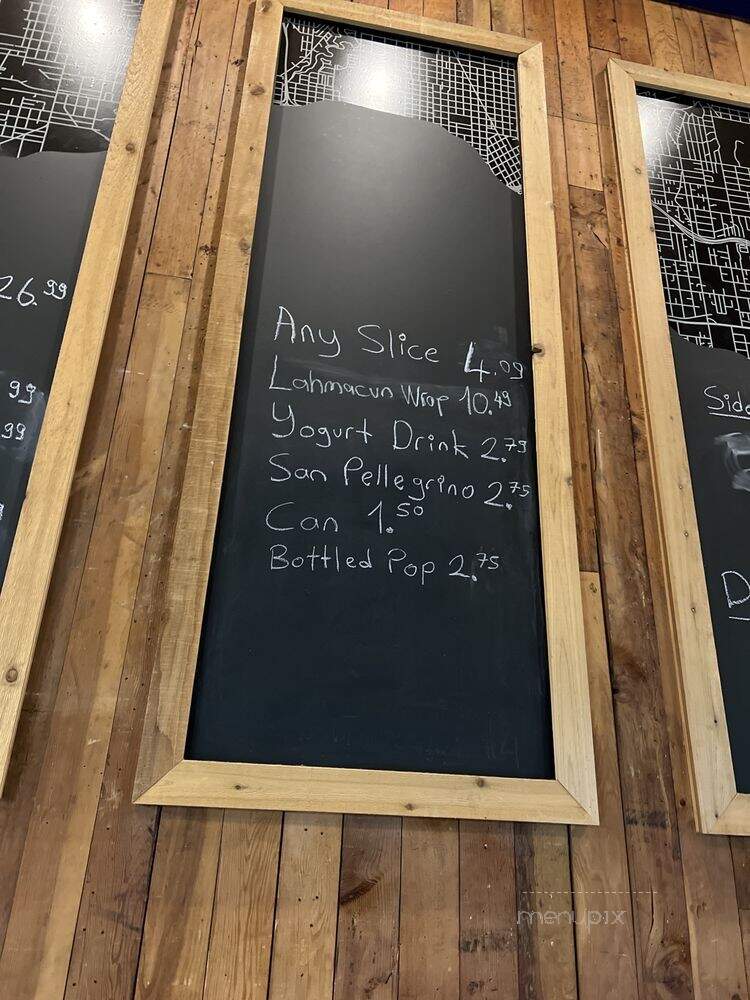 26.99
99
99
Any Slice 4.09
Lahmacun Wrap 10.49
Yogurt Drink 2.79
San Pellegrino 2.75
Can 1.50
Bottled Pop 2.75
Side
D
menupix